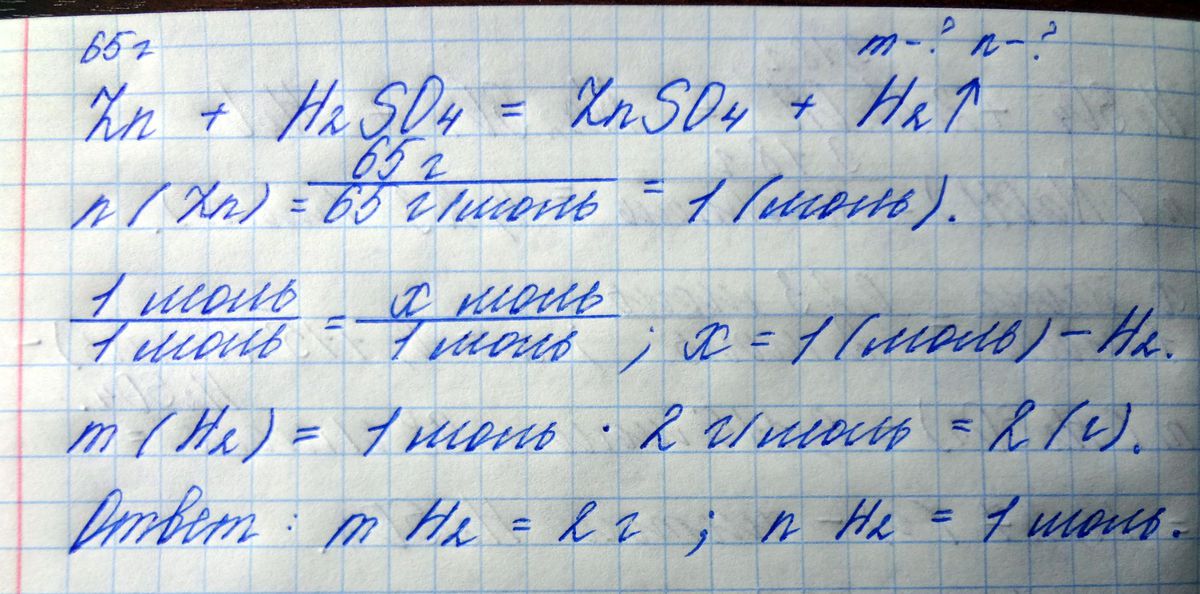 65 г m - ? n - ?
Zn + H₂SO₄ = ZnSO₄ + H₂↑
n (Zn) = 65 г / 65 г/моль = 1 (моль).
1 моль / 1 моль = x моль / 1 моль ; x = 1 (моль) - H₂.
m (H₂) = 1 моль · 2 г/моль = 2 (г).
Ответ : m H₂ = 2 г ; n H₂ = 1 моль.